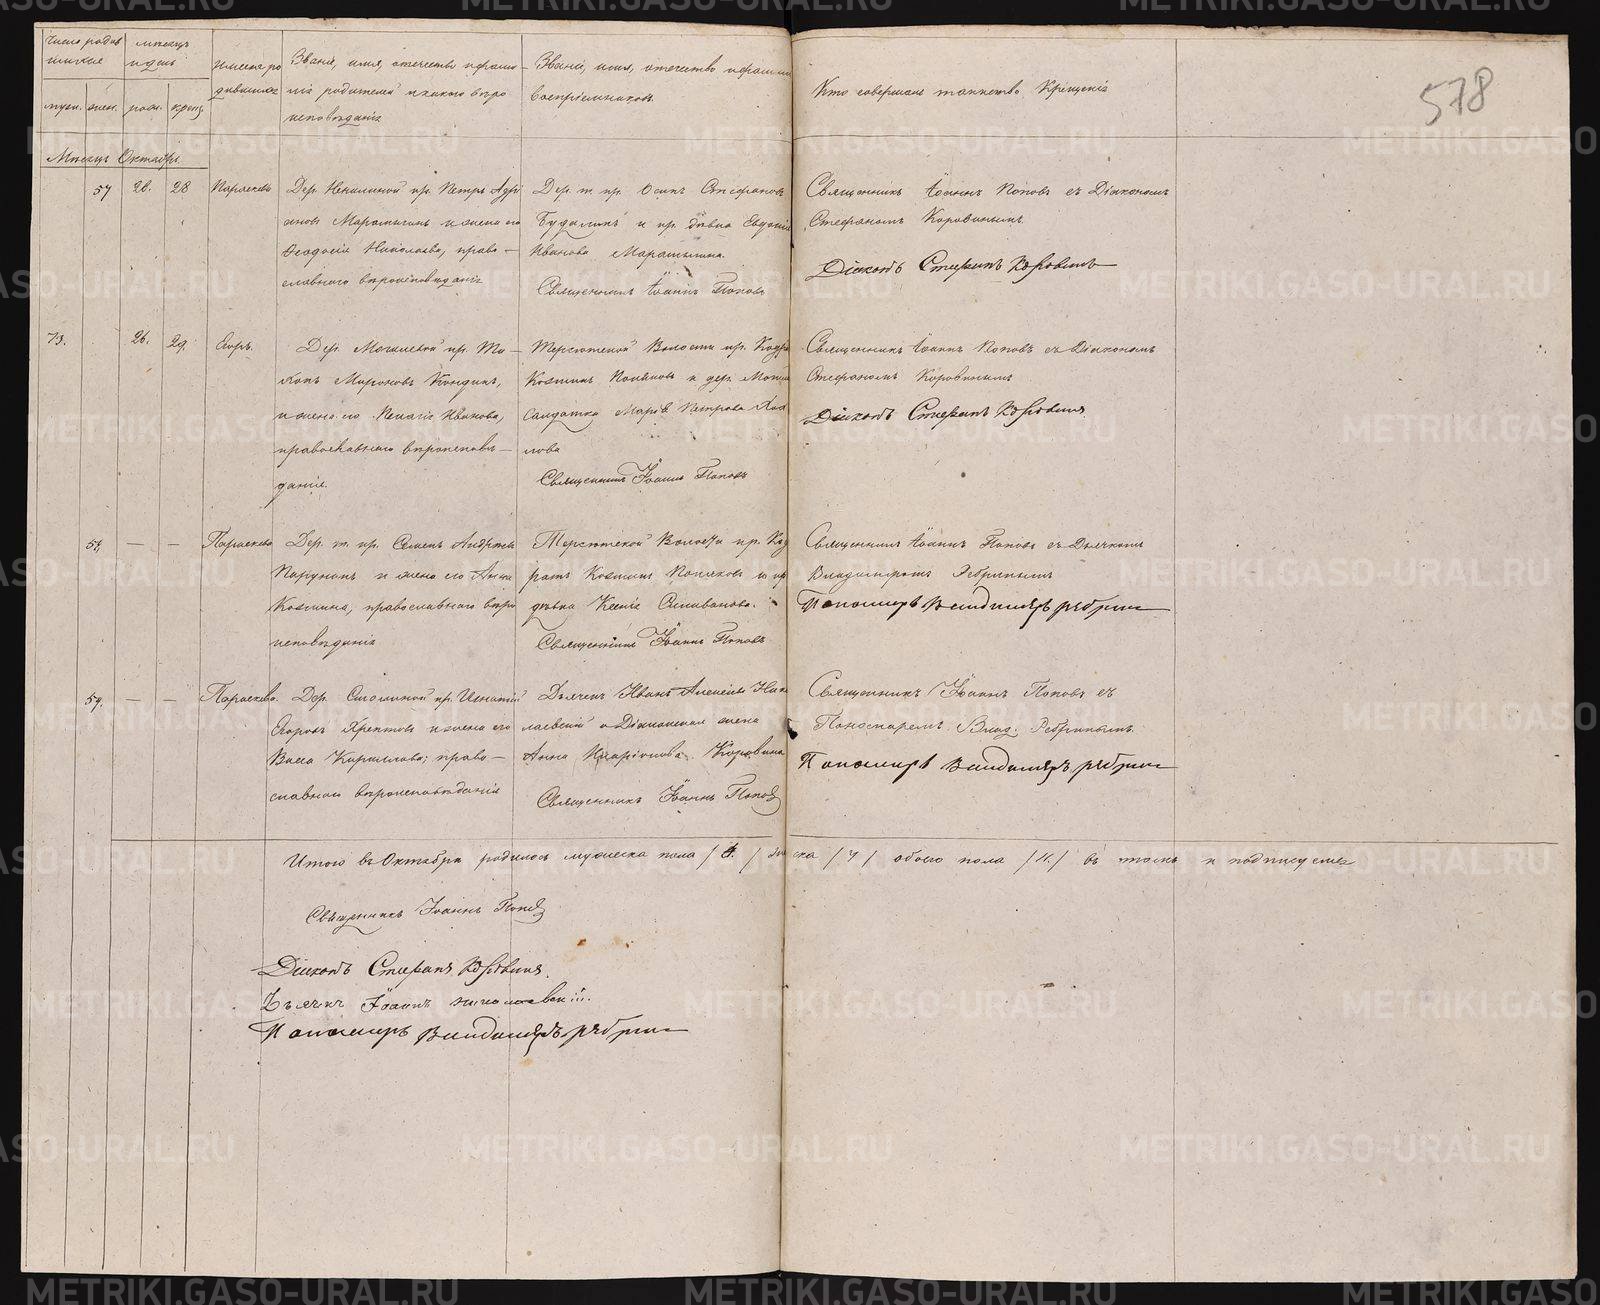 578
Число родив
шихся
муж.
жен.
Мѣсяцъ
и день
рож.
крещ.
Имена ро
дившихся
Званіе, имя, отечество и фами-
лія родителей и какого вѣро
исповѣданія
Званіе, имя, отечество и фамилія
воспріемниковъ
Кто совершалъ таинство Крещенія
Мѣсяцъ Октябрь
57
26.
28
Параскева
Дер. пр. Петръ Адрі
ановъ и жена его
Ѳеодосія Николаева, право-
славнаго вѣроисповѣданія
Дер. т. пр. Осипъ Стефановъ
и пр. дѣвка Евдокія
Иванова
Священникъ Іоаннъ Поповъ
Священникъ Іоаннъ Поповъ съ Діакономъ
Стефаномъ Коровинымъ
Діаконъ Стефанъ Коровинъ
73.
26.
29.
Егоръ.
Дер. пр.
Мироновъ
и жена его Иванова,
православнаго вѣроисповѣ-
данія.
Терсютской Волости пр.
Козминъ и дер.
Солдатка Петрова
лова
Священникъ Іоаннъ Поповъ
Священникъ Іоаннъ Поповъ съ Діакономъ
Стефаномъ Коровинымъ
Діаконъ Стефанъ Коровинъ
58,
—
—
Параскева
Дер. т. пр. Семенъ Андреевъ
и жена его Анна
Козмина, православнаго вѣро
исповѣданія
Терсютской Волости пр. Код
ратъ Козминъ и пр
дѣвка Ксенія Селиванова.
Священникъ Іоаннъ Поповъ
Священникъ Іоаннъ Поповъ съ Дьячкомъ
Владимиромъ Ребринымъ
Пономарь Владимиръ Ребринъ
59.
—
—
Параскева.
Дер. пр. Игнатій
Егоровъ и жена его
Васса Кирилова, право-
славнаго вѣроисповѣданія
Дьячекъ Иванъ Алексѣевъ Нико
лаевскій и Діаконская жена
Анна Иларіонова Коровина
Священникъ Іоаннъ Поповъ
Священникъ Іоаннъ Поповъ съ
Пономаремъ Влад. Ребринымъ.
Пономарь Владимиръ Ребринъ
Итого въ Октябрѣ родилось мужеска пола женска обоего пола въ томъ и подписуемся
Священникъ Іоаннъ Поповъ
Діаконъ Стефанъ Коровинъ.
Дьячекъ Іоаннъ Николаевскій.
Пономарь Владимиръ Ребринъ
METRIKI.GASO-URAL.RU